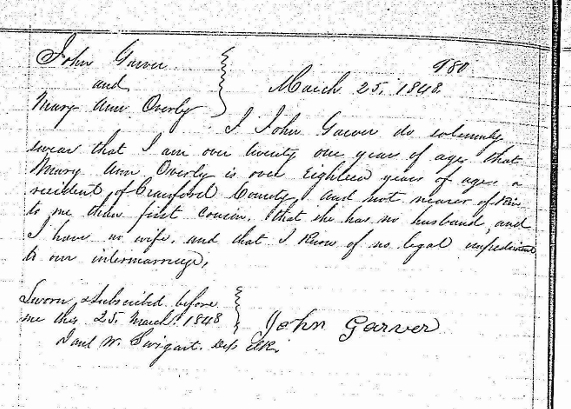 980
John Garver
and
Mary Ann Overly
March 25, 1848.
I John Garver do solemnly
swear that I am over twenty one year of age, that
Mary Ann Overly is over eighteen years of age, a
resident of Crawford County, and not nearer of Kin
to me than first cousin, that she has no husband, and
I have no wife, and that I know of no legal impediment
to our intermarriage,
Sworn & subscribed before
me this 25, March, 1848
W. Swigart. Dep Clk.
John Garver